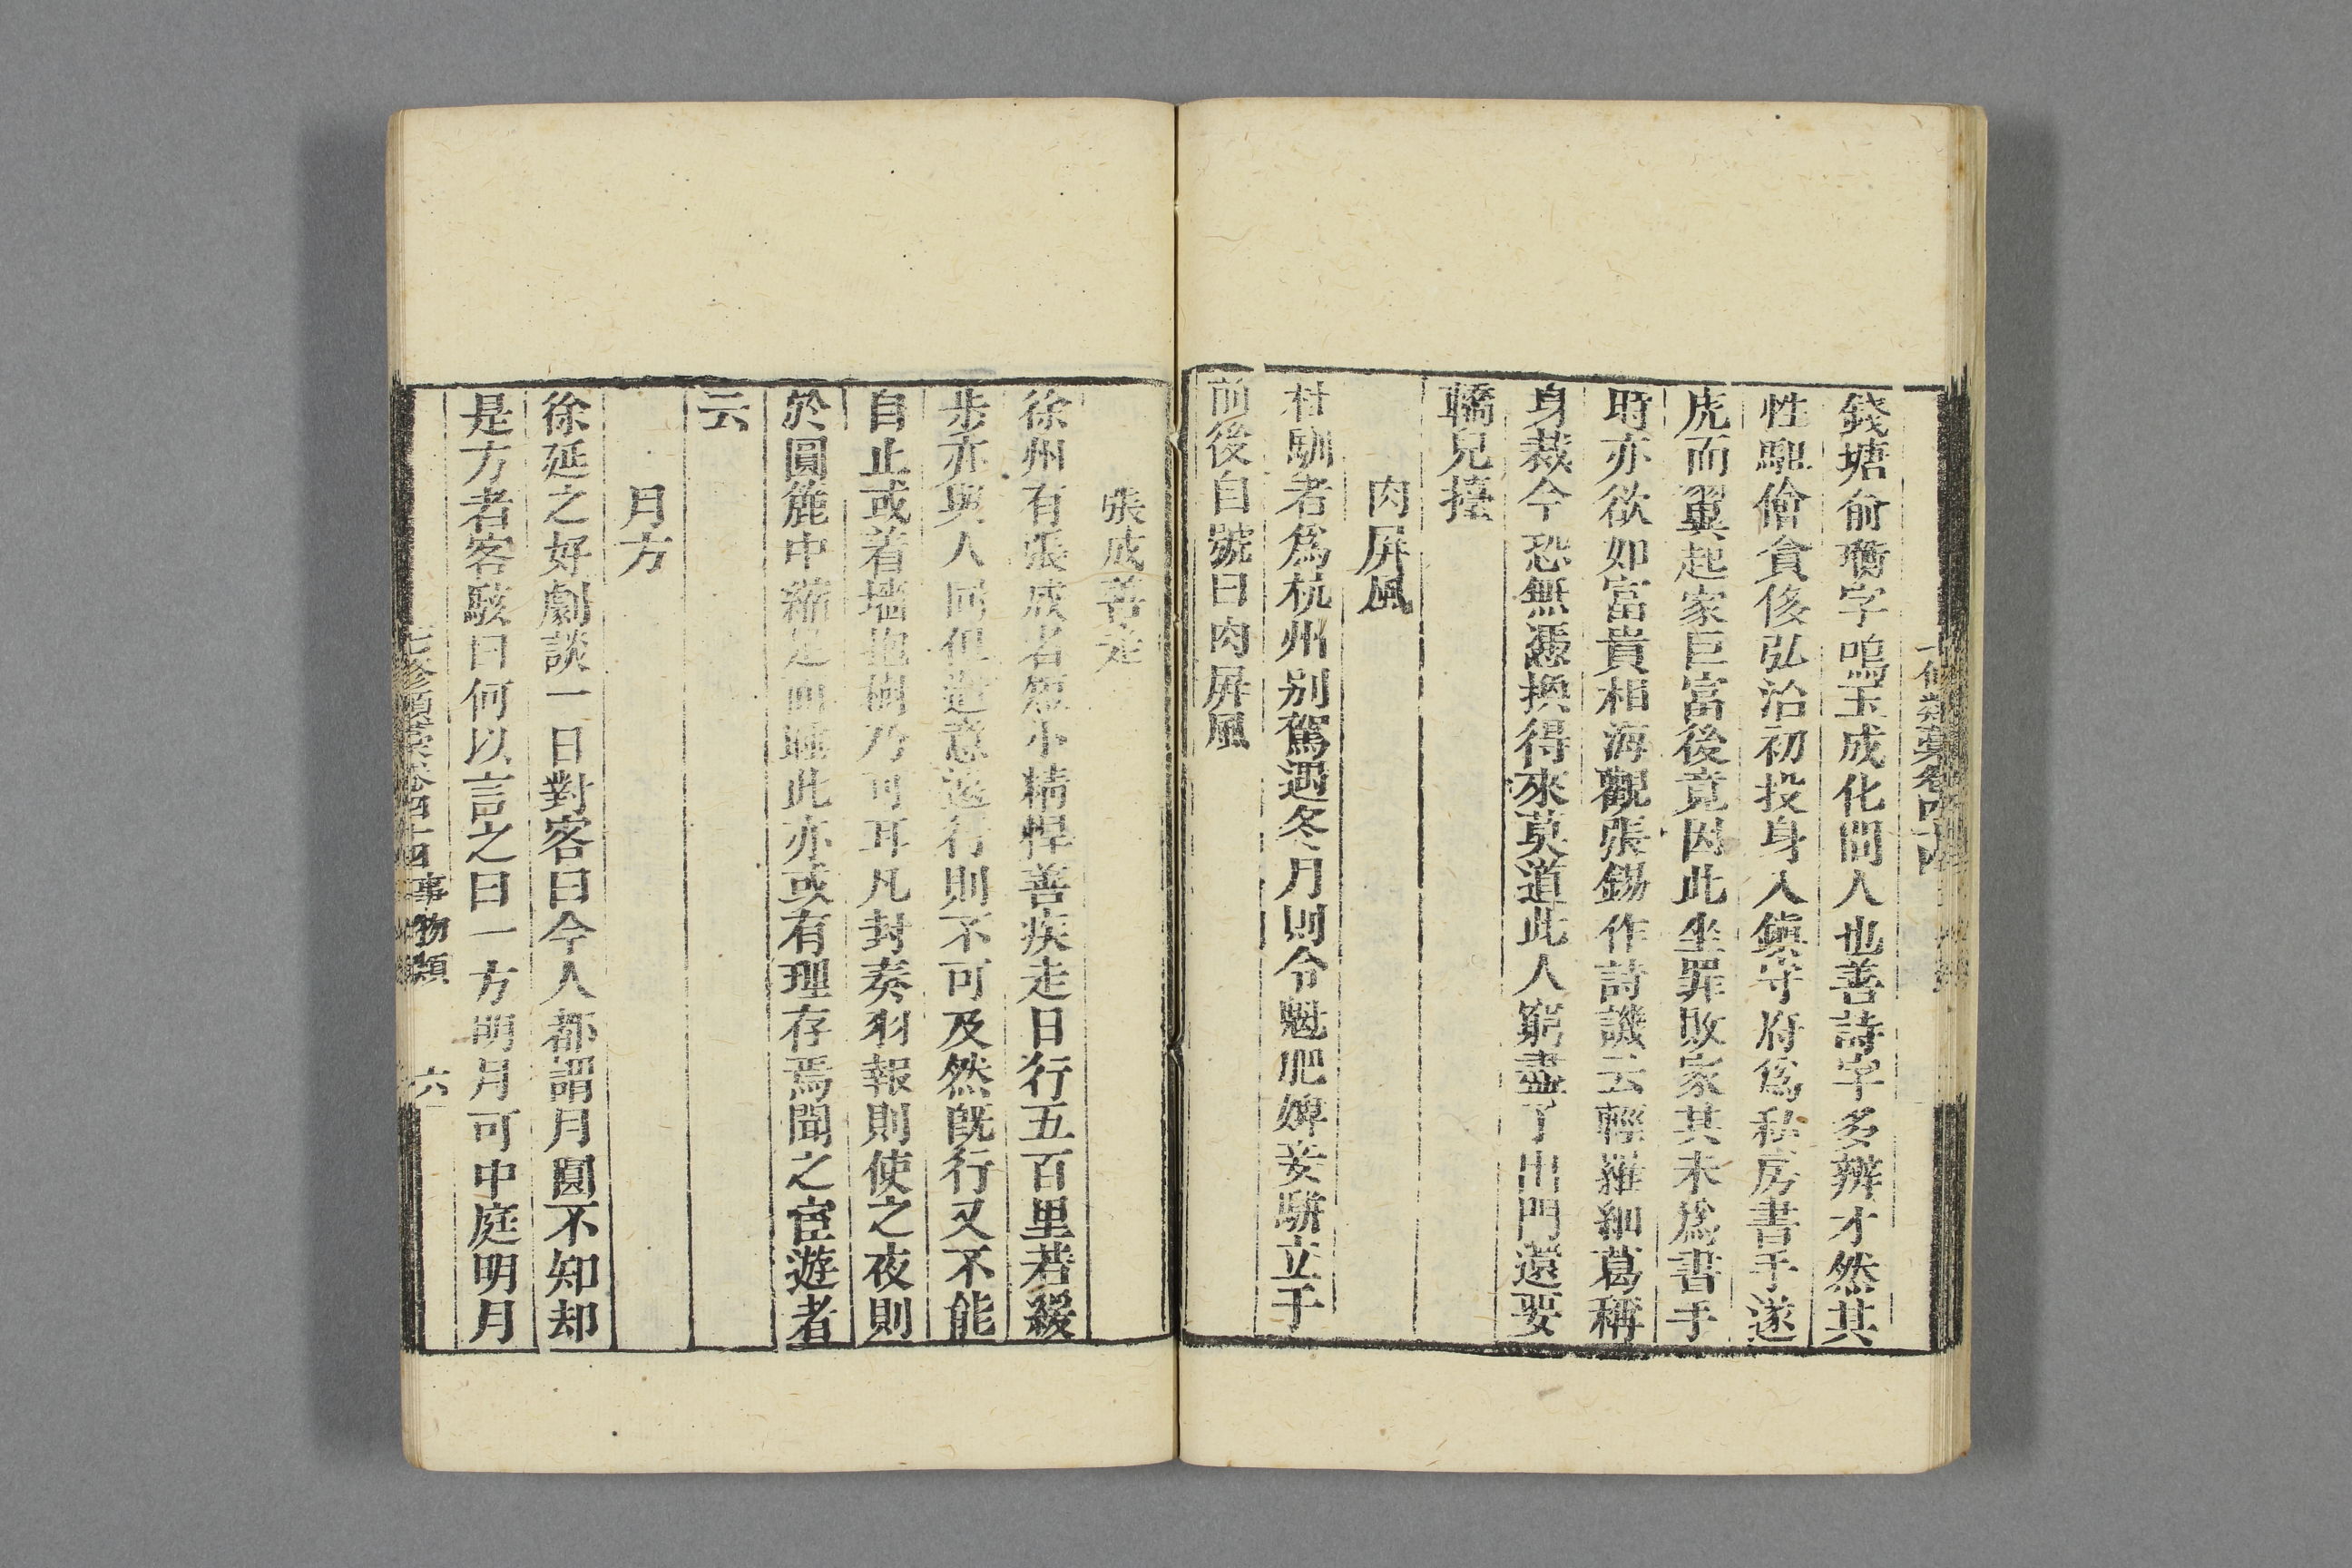 錢塘俞珩字鳴玉成化間人也善詩字多辨才然其
性馹儈貪侈弘治初投身入鎮守府爲私房書手遂
虎而翼起家巨富後竟因此坐罪敗家其未爲書手
時亦欲如富貴相海觀張錫作詩譏云輕羅細葛稱
身裁今恐無憑換得來莫道此人窮盡了出門還要
轎兒擡
肉屏風
杜馴者爲杭州别駕遇冬月則令魁肥婢妾駢立于
前後自號曰肉屏風
張成善走
徐州有張成名短小精悍善疾走日行五百里若緩
步亦與人同但造意遠行則不可及然旣行又不能
自止或着墻抱樹乃可耳凡封奏羽報則使之夜則
於圓簏中縮足而睡此亦或有理存焉聞之宦遊者
云
月方
徐延之好劇談一日對客曰今人都謂月圓不知却
是方者客駭曰何以言之曰一方明月可中庭明月
七修類藁卷四十四 事物類 六